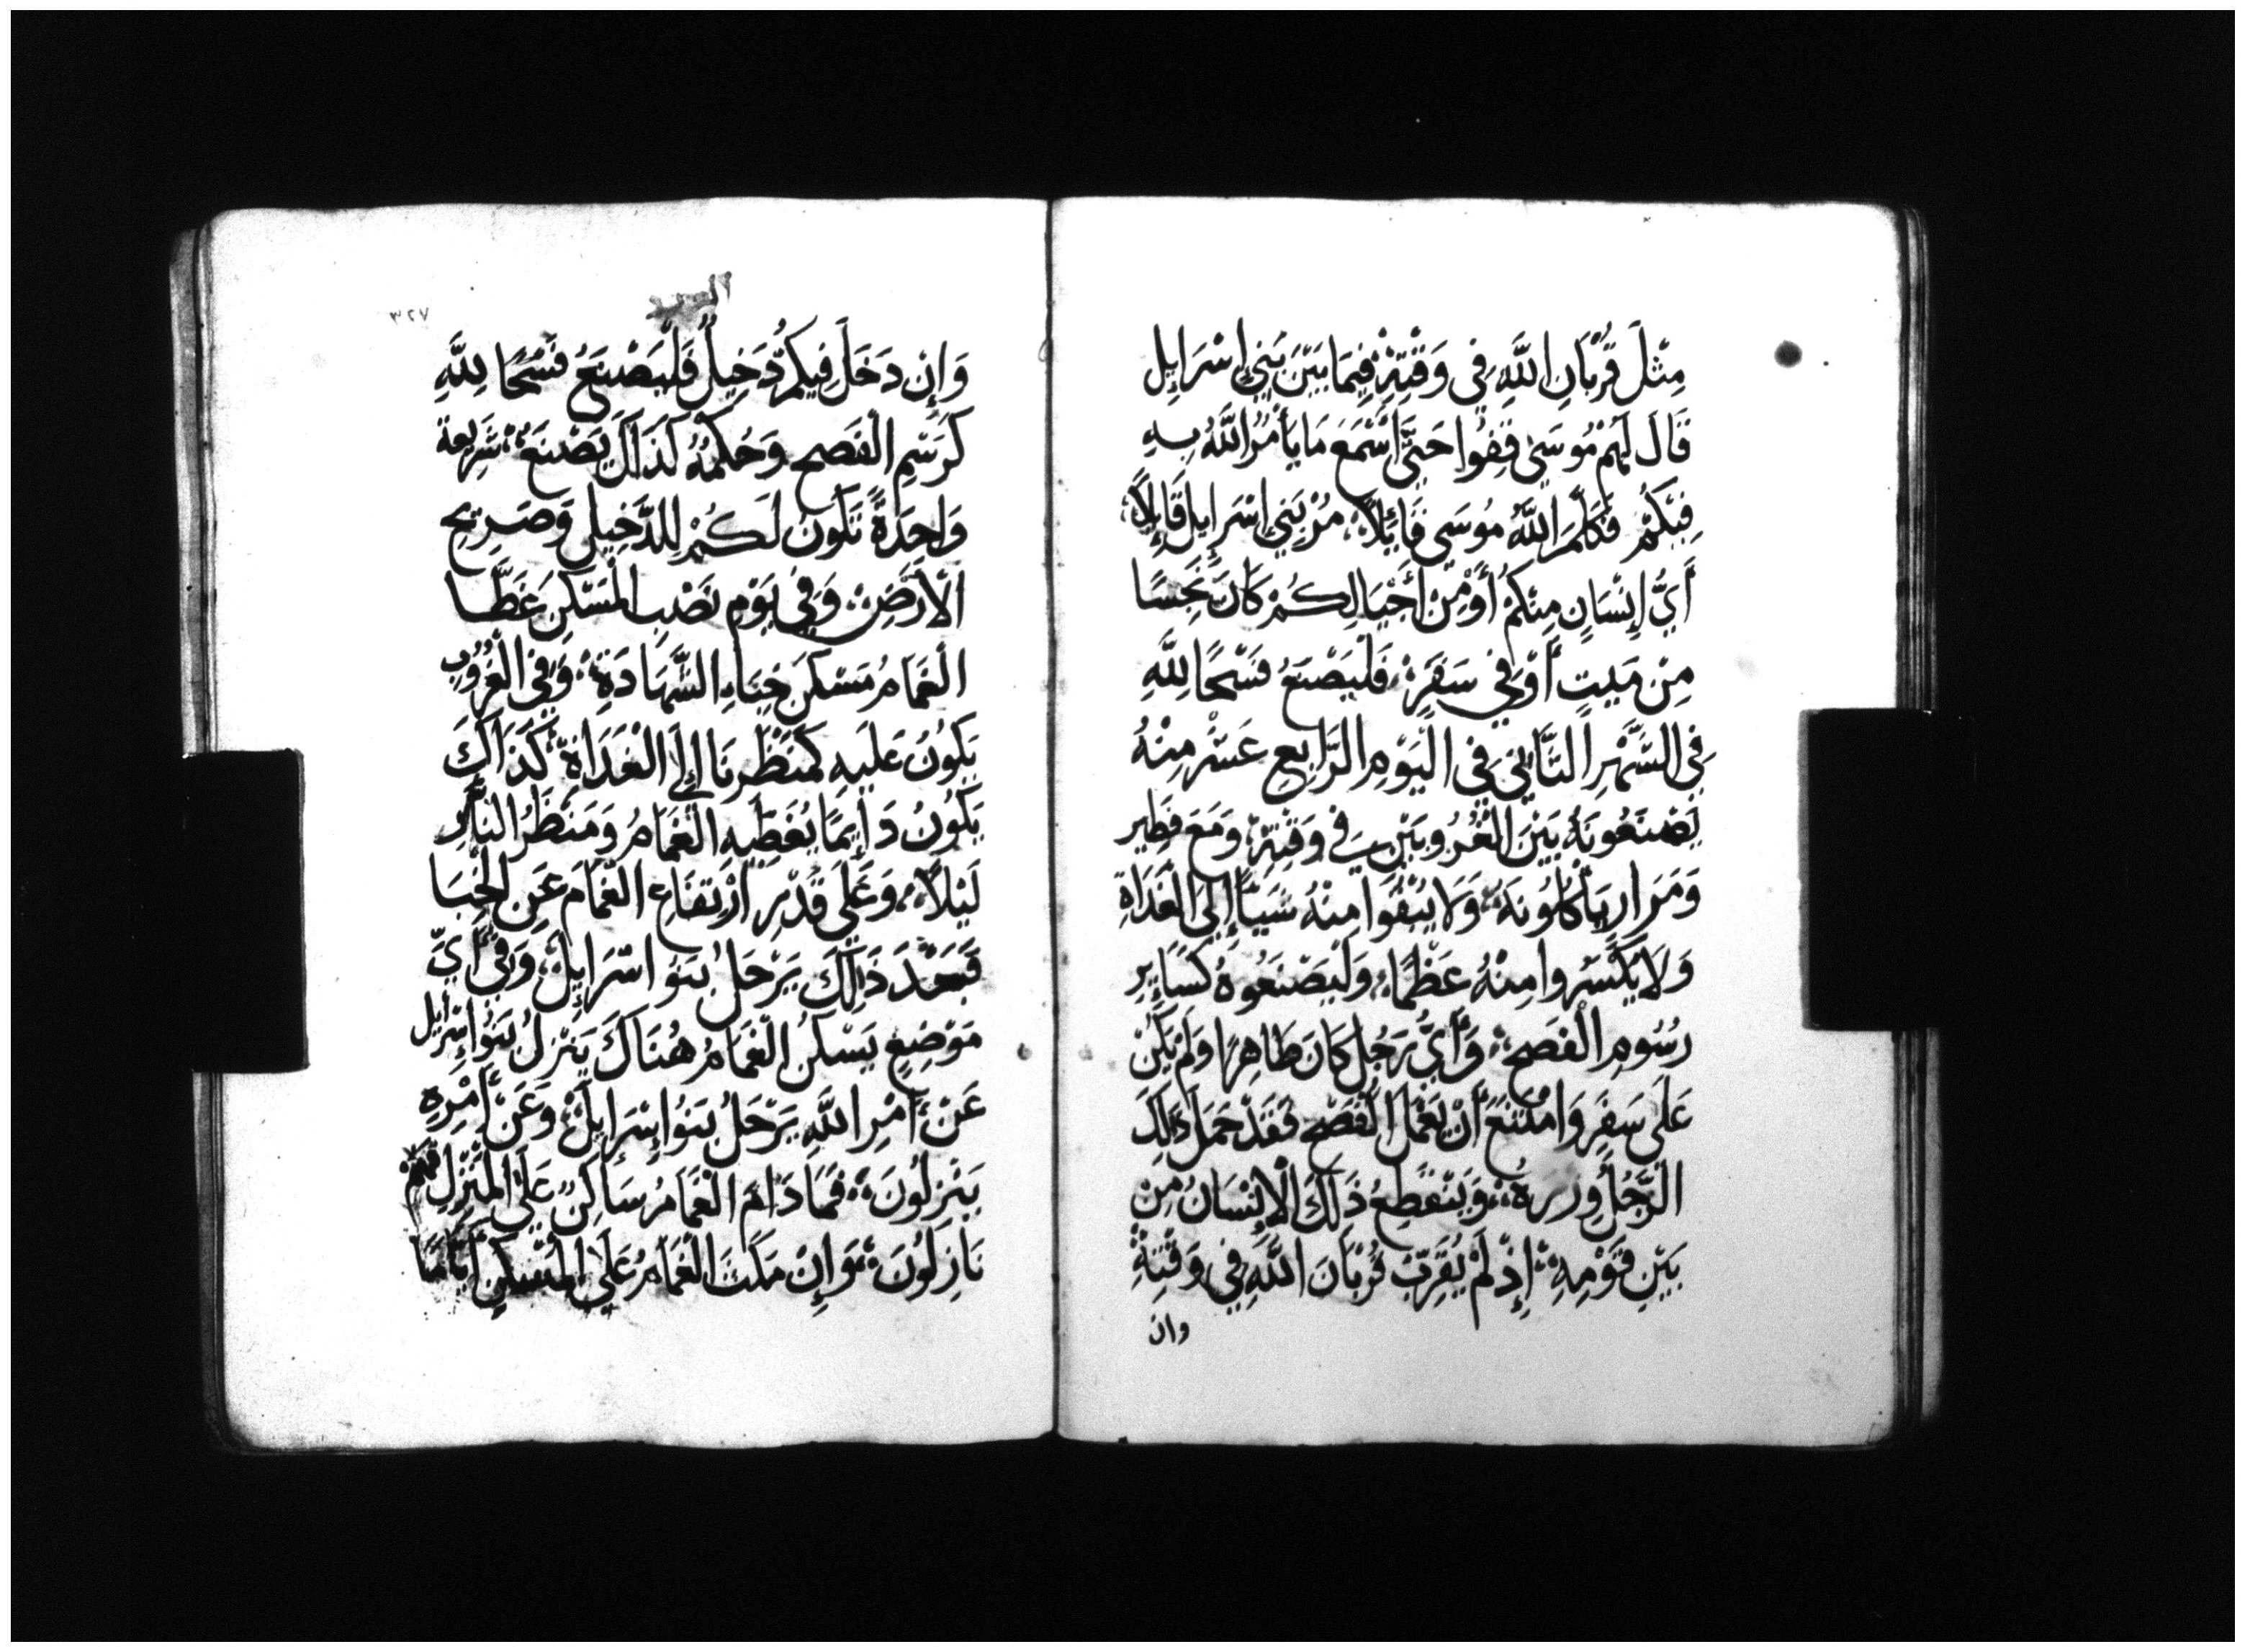 مِثْلَ قُرْبَانِ اللَّهِ فِى وَقْتِهِ فِيمَا بَيْنَ بَنِي إِسْرَايِل
قَالَ لَهُمْ مُوسَى قِفُوا حَتَّى أَسْمَعَ مَا يَأْمُرُ اللَّهُ بِهِ
فِيكُمْ فَكَلَّمَ اللَّهُ مُوسَى قَايِلًا مُرْ بَنِي إِسْرَايِلَ قَايِلًا
أَيُّ إِنْسَانٍ مِنْكُمْ أَوْ مِنْ أَجْيَالِكُمْ كَانَ نَجِسًا
مِنْ مَيتٍ أَوْ فِي سَفَرٍ فَلْيَصْنَعُ فَسْحًا لِلَّهِ
فِي الشَّهْرِ الثَّانِي فِي الْيَوْمِ الرَّابِعِ عَشَر مِنْهُ
يَصْنَعُونَهُ بَيْنَ الْغُرُوبَيْنِ فِي وَقْتِهِ وَمَعَ فَطِير
وَمَرَارٍ يَأْكُلُونَهُ وَلَا يُبْقُوا مِنْهُ شَيًا إِلَى الْغَدَاةِ
وَلَا يَكْسِرُوا مِنْهُ عَظْمًا وَلْيَصْنَعُوهُ كَسَايِرِ
رُسُومِ الْفَصحِ وَأَيُّ رَجُلٍ كَانَ طَاهِرًا وَلَمْ يَكُنْ
عَلَى سَفَرٍ وَامْتَنَعَ أَنْ يَعْمَلَ الْفَصْحَ فَقَدْ حَمَلَ ذَلِكَ
الرَّجُلُ وِزْرَهُ وَيَنْقَطِعُ ذَلِكَ الْإِنْسَانُ مِنْ
بَيْنِ قَوْمِهِ إِذْ لَمْ يُقَرِّبْ قُرْبَانَ اللَّهِ فِي وَقْتِهِ
وان
٣٢٧
وَإِنْ دَخَلَ فِيكُمْ دَخِيلٌ فَلْيَصْنَعُ فَسْحًا لِلَّهِ
كَرَسْمِ الْفَصحِ وَحُكْمُهُ كَذَلِكَ يَصْنَعُ شَرِيعَة
وَاحِدَةً تَكُونُ لَكُمْ لِلدَّخِيلِ وَصَرِيحِ
الْأَرْضِ وَفِي يَوْمِ نَصْبِ الْمَسْكَنِ غَطَّا
الْغَمَامُ مَسْكَنَ خِبَاءِ الشَّهَادَةِ وَفِي الْغُرُوبِ
يَكُونُ عَلَيهِ كَمَنْظَرِ نَار إِلَى الْغَدَاةِ كَذَلِكَ
يَكُونُ دَايِمًا يُغَطِّيهِ الْغَمَامُ وَمَنْظَرُ النَّارِ
لَيْلًا وَعَلَى قَدْرِ ارْتِفَاعِ الْغَمَامِ عَنِ الْخِبَا
فَبَعْدَ ذَلِكَ يَرْحَلُ بَنُو اسْرَايِلَ وَفِي أَيِّ
مَوْضِعٍ يَسْكُنُ الْغَمَامُ هُنَاكَ يَنْزِلُ بَنُوا إِسْرَايِل
عَنْ أَمْرِ اللَّهِ يَرْحَلُ بَنُوا إِسْرَايِلَ وَعَنْ أَمْرِهِ
يَنْزِلُونَ فَمَا دَامَ الْغَمَامُ سَاكِنٌ عَلَى الْمَنْزِلِ فَهُمْ
نَازِلُونَ وَإِنْ مَكَثَ الْغَمَامُ عَلَى الْمَسْكَنِ أَيَّامًا